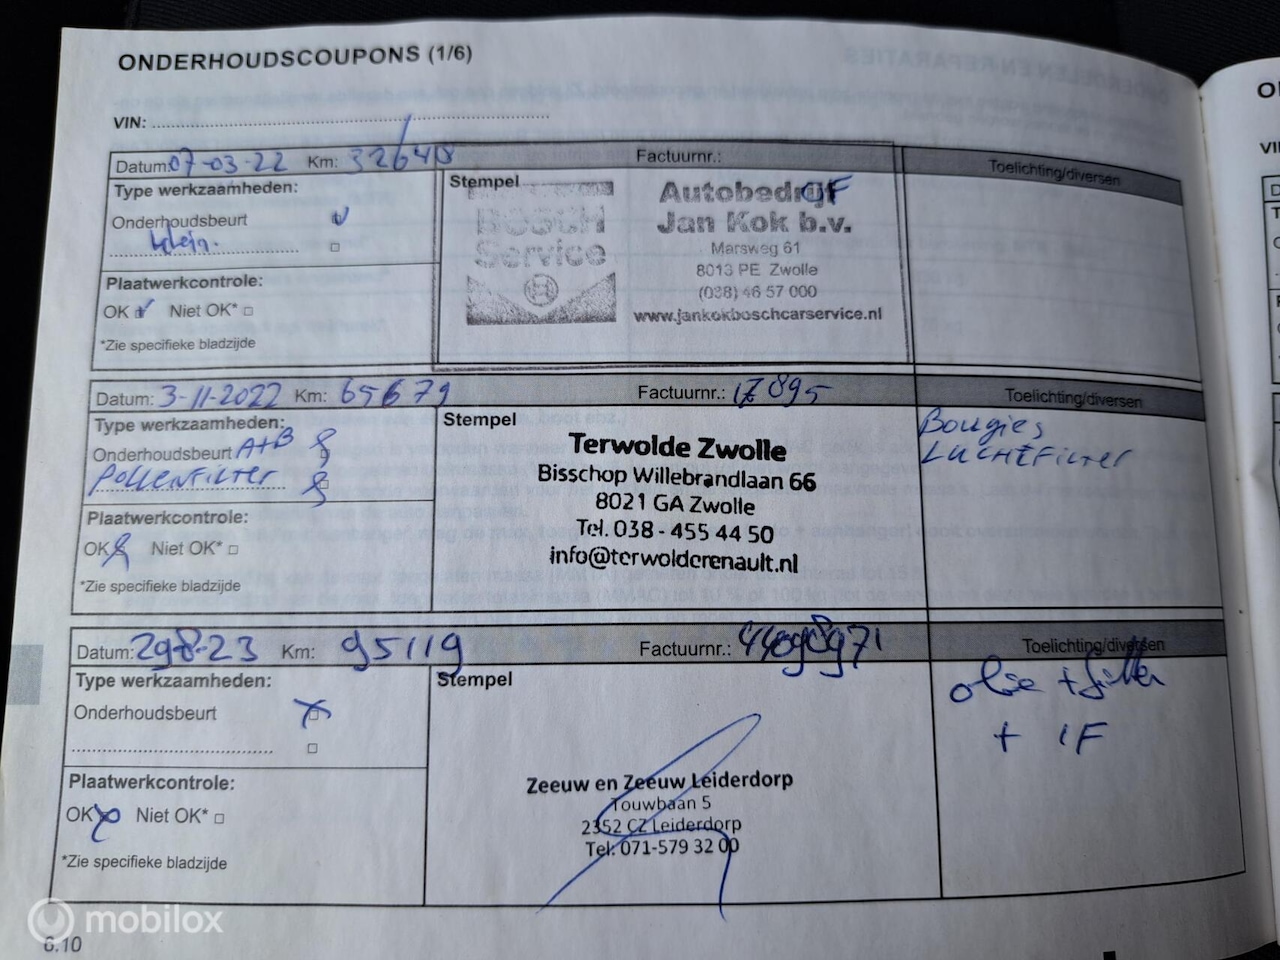 ONDERHOUDSCOUPONS (1/6)
VIN:
Datum: 07-03-22 Km: 32648 Factuurnr.: Toelichting/diversen
Type werkzaamheden:
Onderhoudsbeurt
klein.
Plaatwerkcontrole:
OK Niet OK*
*Zie specifieke bladzijde
Stempel
BOSCH
Service
Autobedrijf
Jan Kok b.v.
Marsweg 61
8013 PE Zwolle
(038) 46 57 000
www.jankokboschcarservice.nl
Datum: 3-11-2022 Km: 65679 Factuurnr.: 17895 Toelichting/diversen
Type werkzaamheden:
Onderhoudsbeurt A+B
POLLENFILTER
Plaatwerkcontrole:
OK Niet OK*
*Zie specifieke bladzijde
Stempel
Terwolde Zwolle
Bisschop Willebrandlaan 66
8021 GA Zwolle
Tel. 038 - 455 44 50
info@terwolderenault.nl
Bougies
LUCHTFILTER
Datum: 29-8-23 Km: 95119 Factuurnr.: Toelichting/diversen
Type werkzaamheden:
Onderhoudsbeurt
Plaatwerkcontrole:
OK Niet OK*
*Zie specifieke bladzijde
Stempel
Zeeuw en Zeeuw Leiderdorp
Touwbaan 5
2352 CZ Leiderdorp
Tel. 071-579 32 00
olie + filter
+ IF
6.10
mobilox